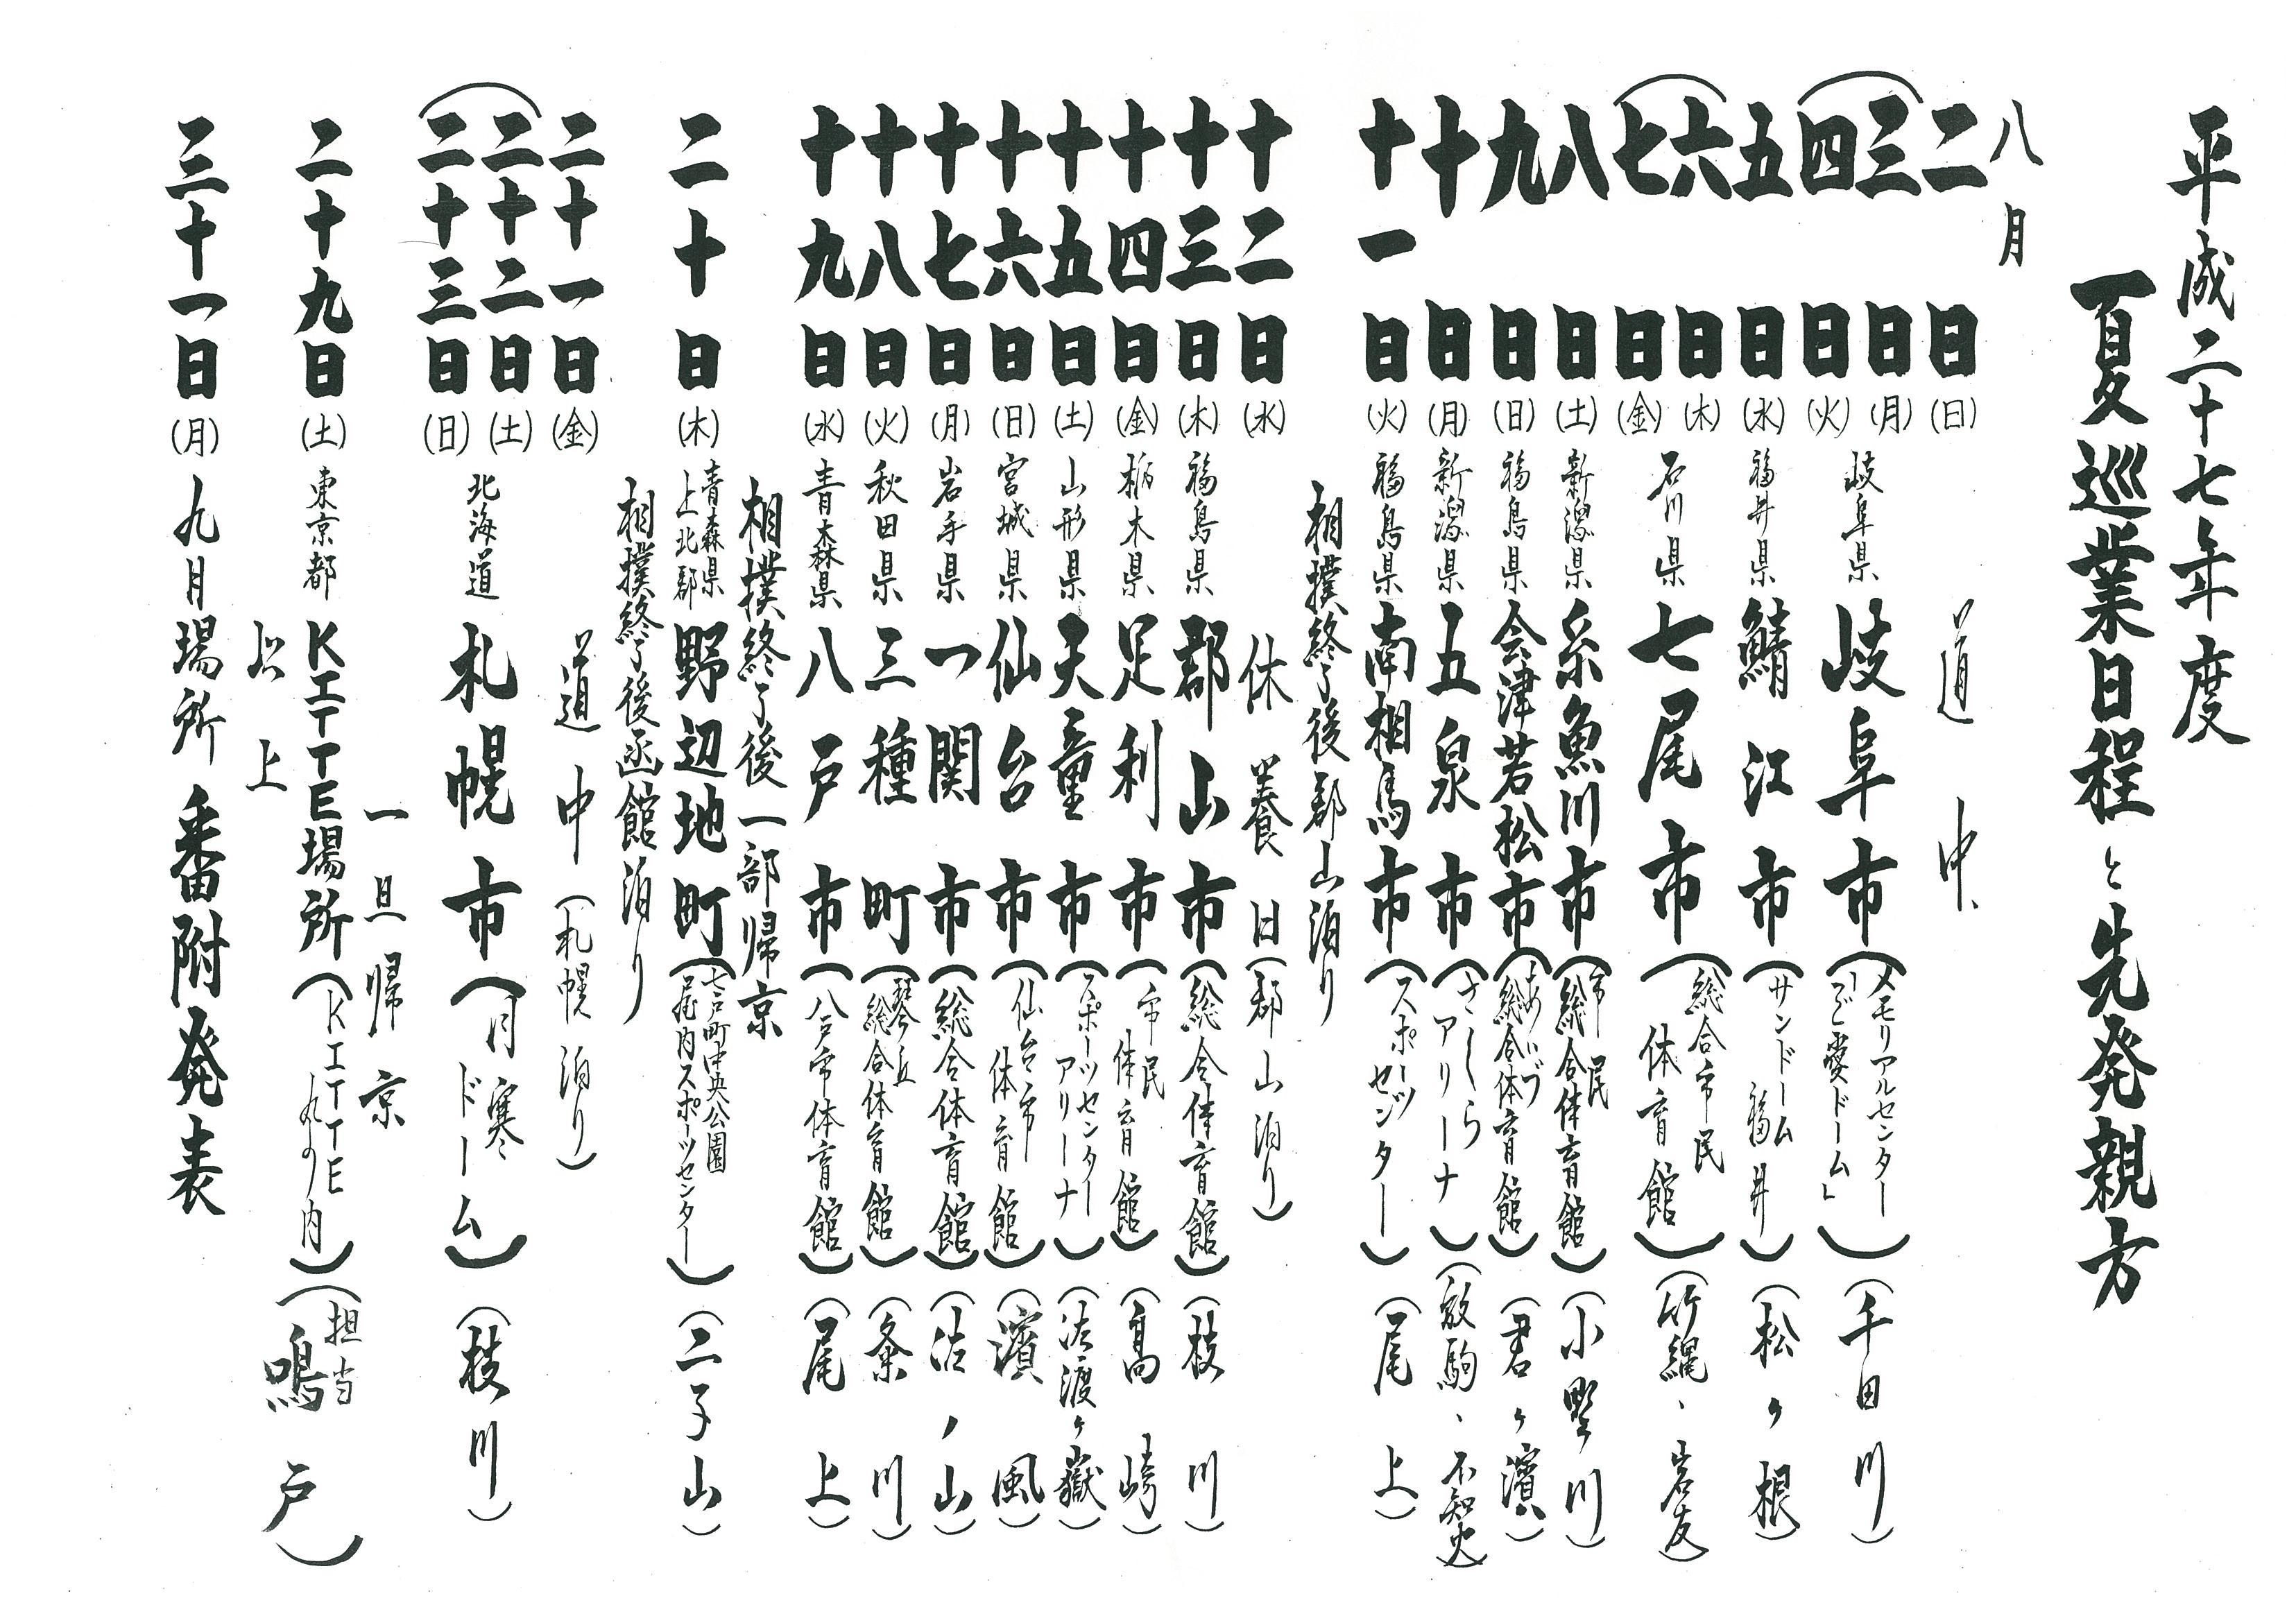 平成二十七年度
夏巡業日程と先発親方
八月
二日(日) 道中
三日(月) 岐阜県 岐阜市(メモリアルセンター「で愛ドーム」)(千田川)
四日(火)
五日(水) 福井県 鯖江市(サンドーム福井)(松ヶ根)
六日(木) 石川県 七尾市(総合市民体育館)(竹縄、岩友)
七日(金)
八日(土) 新潟県 糸魚川市(市民総合体育館)(小野川)
九日(日) 福島県 会津若松市(あいづ総合体育館)(君ヶ濱)
十日(月) 新潟県 五泉市(さくらアリーナ)(放駒、不知火)
十一日(火) 福島県 南相馬市(スポーツセンター)(尾上)
相撲終了後郡山泊り
十二日(水) 休養日(郡山泊り)
十三日(木) 福島県 郡山市(総合体育館)(枝川)
十四日(金) 栃木県 足利市(市民体育館)(高崎)
十五日(土) 山形県 天童市(スポーツセンターアリーナ)(佐渡ヶ嶽)
十六日(日) 宮城県 仙台市(仙台市体育館)(濱風)
十七日(月) 岩手県 一関市(総合体育館)(佐ノ山)
十八日(火) 秋田県 三種町(琴丘総合体育館)(粂川)
十九日(水) 青森県 八戸市(八戸市体育館)(尾上)
相撲終了後一部帰京
二十日(木) 青森県上北郡 野辺地町(七戸町中央公園屋内スポーツセンター)(二子山)
相撲終了後函館泊り
二十一日(金) 道中(札幌泊り)
二十二日(土) 北海道 札幌市(月寒ドーム)(枝川)
二十三日(日)
一旦帰京
二十九日(土) 東京都 KITTE場所(KITTE丸の内)(担当 鳴戸)
以上
三十一日(月) 九月場所番附発表